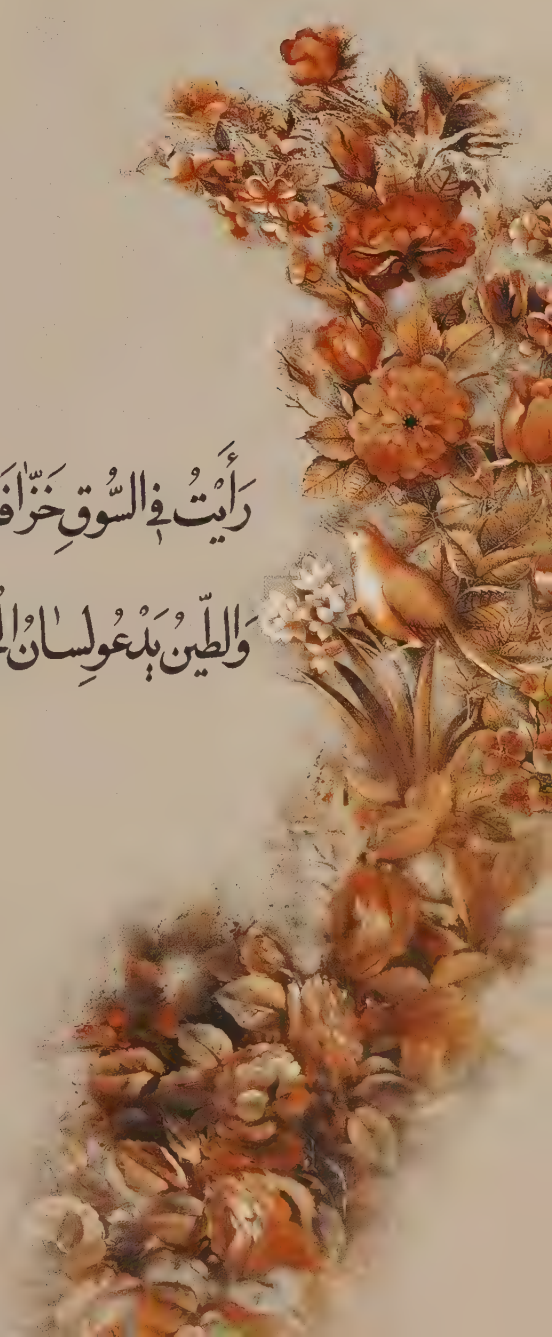 رَأَيْتُ فِي السُّوقِ خَزَّافَ
وَالطِّينُ يَدْعُو لِسَانُ الْ